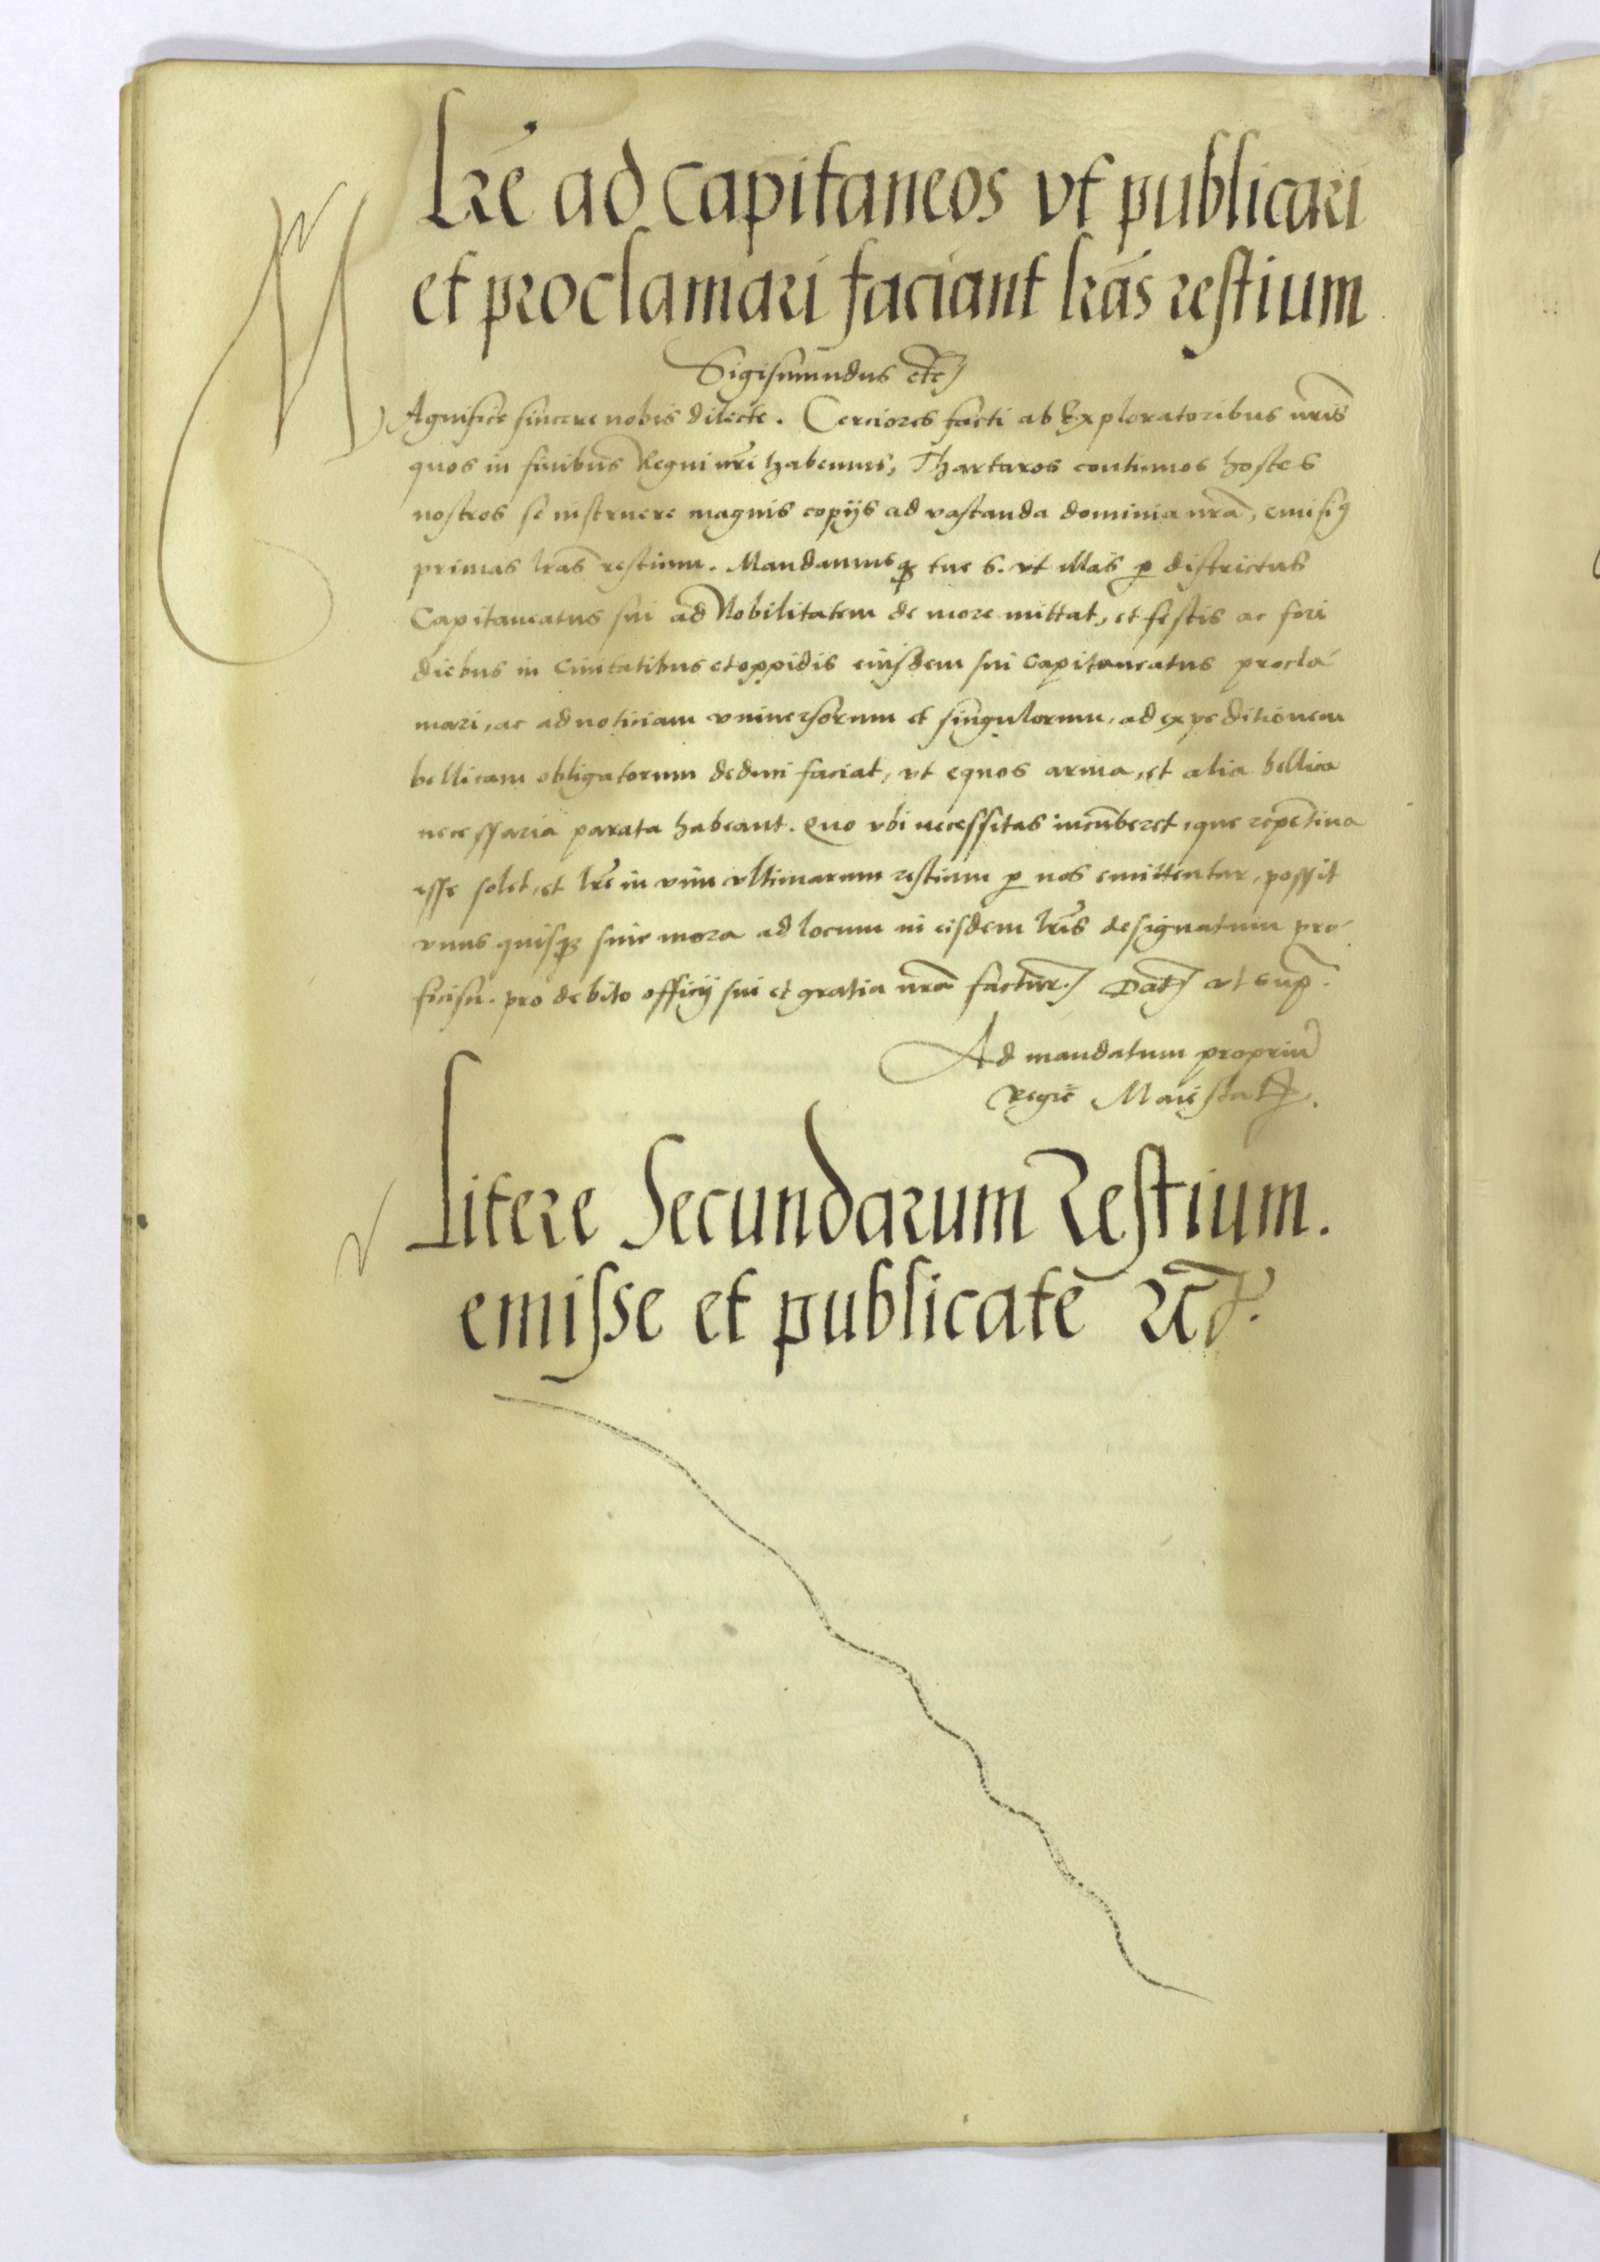 Lrẽ ad capitaneos vt publicari
et proclamari faciant lrãs restium
Sigismundus etc̃
MAgnifice sincere nobis dilecte. Cerciores facti ab Exploratoribus nr̃is
quos in finibus Regni nr̃i habemus, Thartaros continuos hostes
nostros se instruere magnis copijs ad vastanda dominia nrã, emisimꝰ
primas lrãs restium. Mandamusqꝫ tue s. vt illas ꝑ districtus
Capitaneatus sui ad Nobilitatem de more mittat, et festis ac fori
diebus in Ciuitatibus et oppidis eiusdem sui capitaneatus procla
mari, ac ad noticiam vniuersorum et singulorum, ad expeditionem
bellicam obligatorum deduci faciat, vt equos arma, et alia bellica
necessaria parata habeant. Quo vbi necessitas incũberet, que repẽtina
esse solet, et lrẽ in vim vltimarum restium ꝑ nos emittentur, possit
vnus quisqꝫ sine mora ad locum in eisdem lrĩs designatum pro
ficisci. pro debito officij sui et gratia nrã factur. Dat̃ vt sup̃.
Ad mandatum propriũ
Regiẽ Maiestatꝭ.
Litere Secundarum Restium.
emisse et publicate